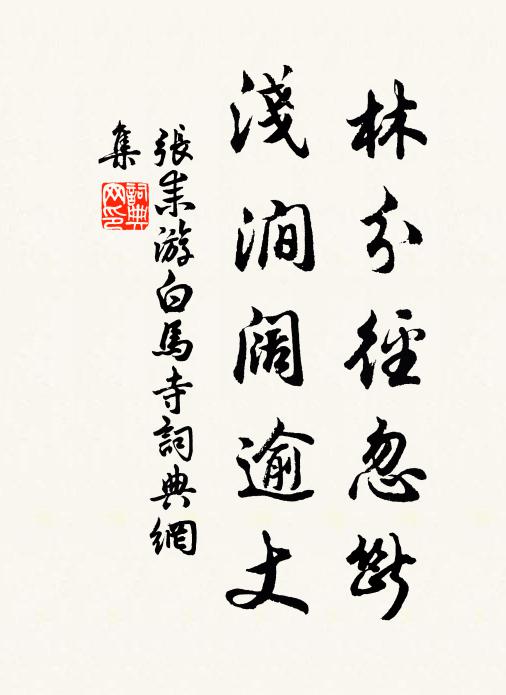 林分徑忽斷
淺澗闊逾丈
張耒游白馬寺詞典網
集
詞典
网印